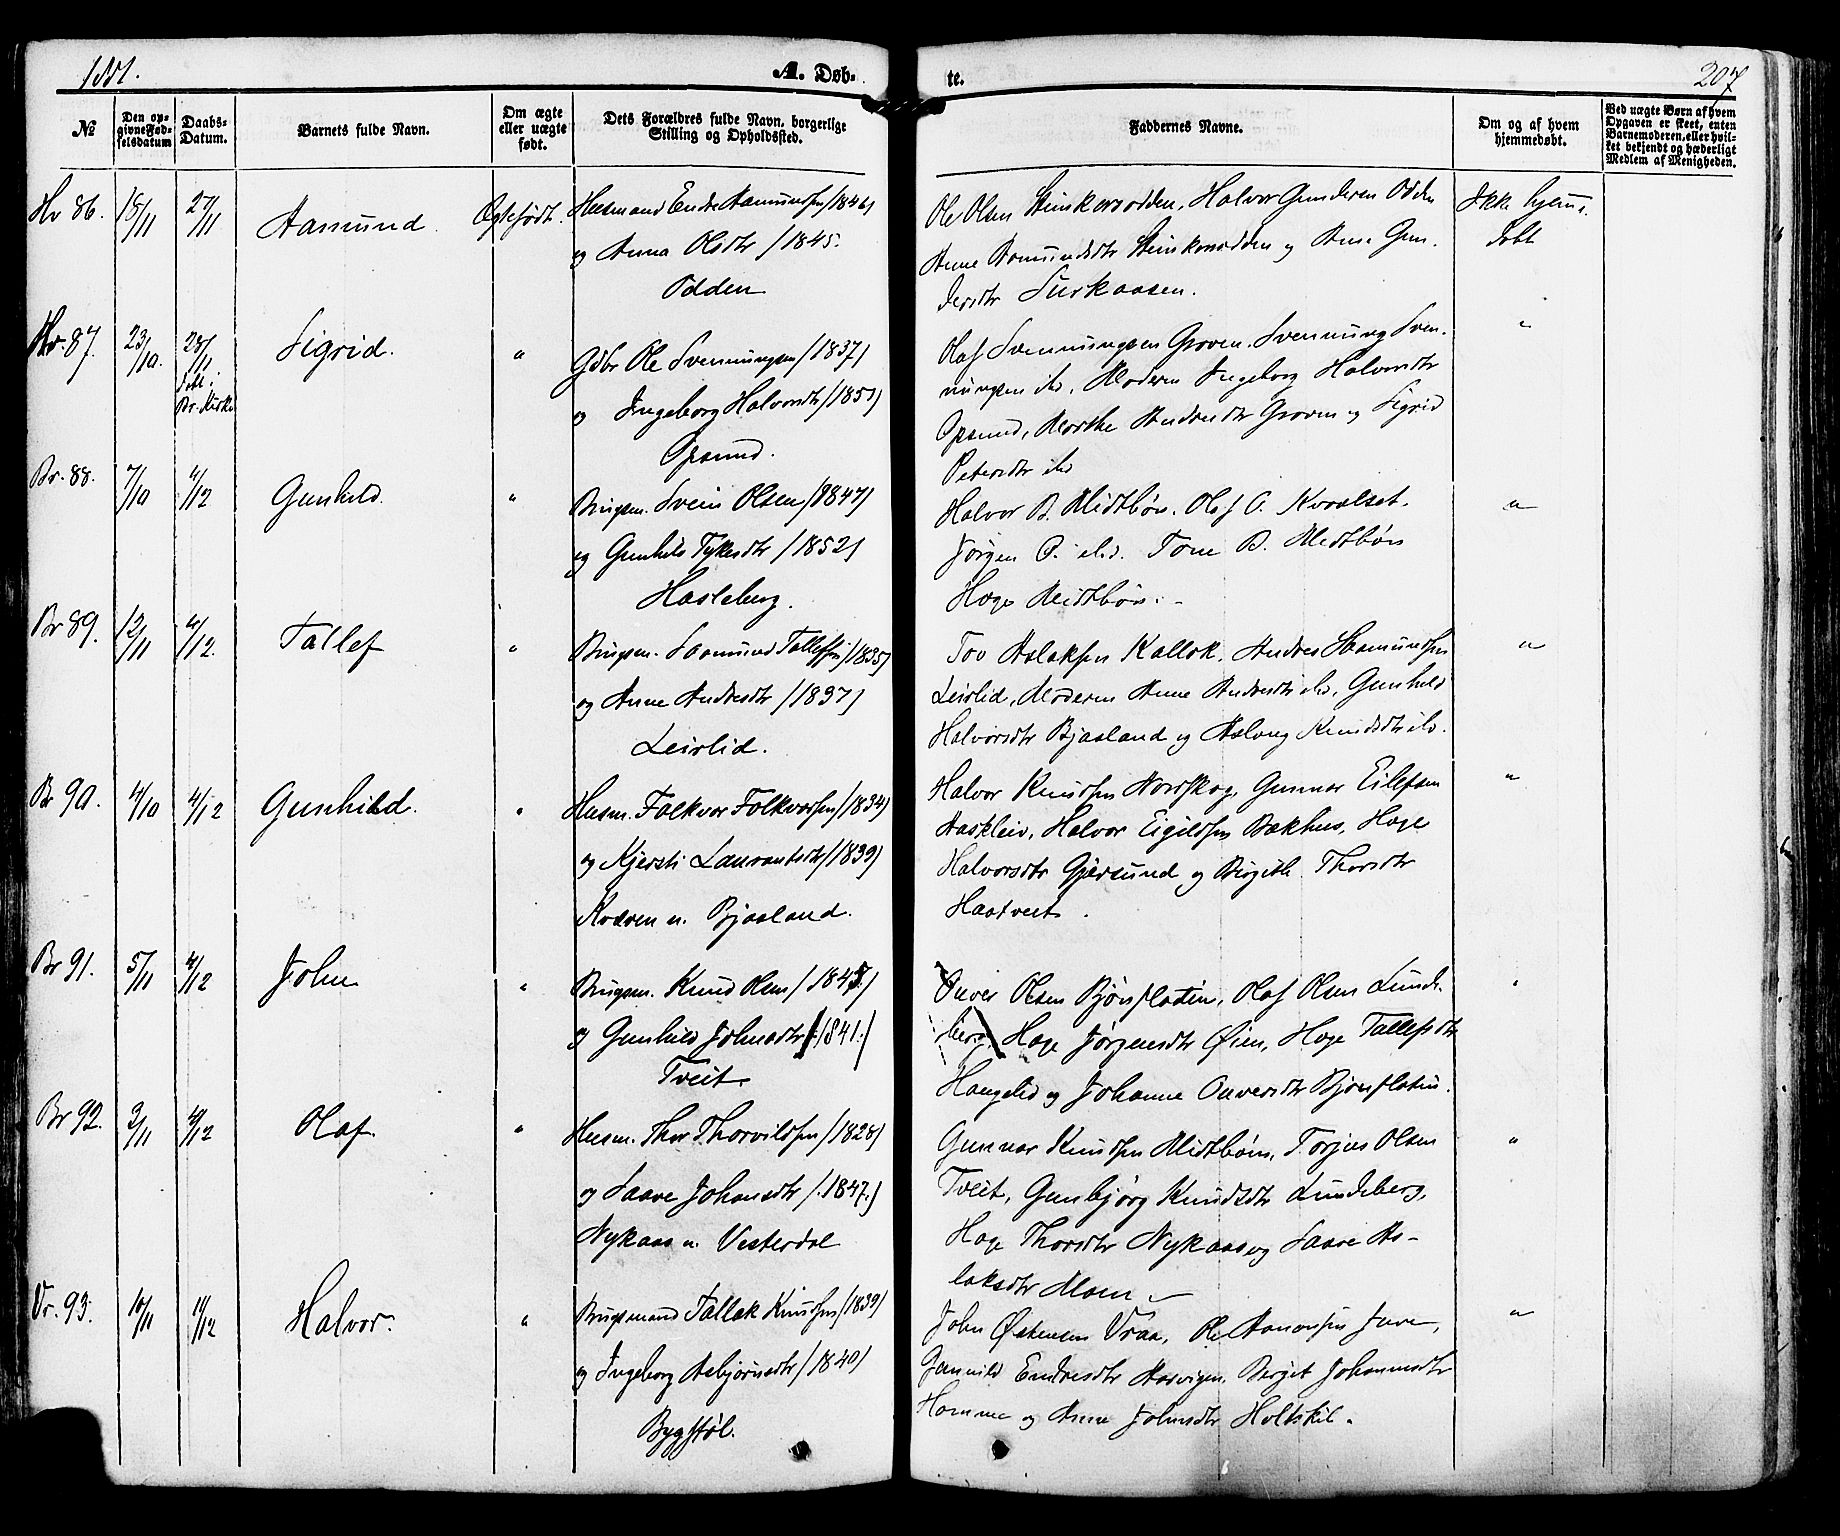 1881.
A. Døb-
te.
207
№
Den op-
givne Fød-
selsdatum
Daabs-
Datum.
Barnets fulde Navn.
Om ægte
eller uægte
født.
Dets Forældres fulde Navn, borgerlige
Stilling og Opholdssted.
Faddernes Navne.
Om og af hvem
hjemmedøbt.
Ved uægte Børn af hvem
Opgaven er skeet, enten
Barnemoderen, eller hvil-
ket bekjendt og hæderligt
Medlem af Menigheden.
Hv 86.
18/11
27/11
Aamund.
Ægtefødt.
Husmand Endre Aamundsen /1846/
og Anna Olsdtr /1845.
Odden
Ole Olsen Odden
Anne Aamundsdtr og Anne Gun-
dersdtr
Ikke hjemme-
døbt
Hv. 87.
23/10.
28/11
Br. Kirke
Sigrid.
"
Gdbr Ole Svennungsen /1837/
og Ingeborg Halvorsdtr /1851/
Opsund.
Olaf Svennungsen Groven. Svennung Sven-
nungsen ibd, Moderen Ingeborg Halvorsdtr
Opsund, Marthe Andresdtr Groven og Sigrid
Petersdtr ibd
"
Br. 88.
7/10
4/12
Gunhild.
"
Brugsm. Svein Olsen /1847/
og Gunhild Tykesdtr /1852/
Hasleberg.
Halvor B. Midtbøn. Olaf O. Kvaalset.
Jørgen O. ibd. Tone B. Midtbøn
Hæge Midtbøn. -
"
Br 89.
12/11
4/12.
Tallef
"
Brugsm. Saamund Tallefsen /1835/
og Anne Andresdtr /1837/
Leirlid.
Tov Aslaksen Kallok. Andres Saamundsen
Leirlid, Moderen Anne Andresdtr ibd, Gunhild
Halvorsdtr Bjaaland og Aslaug Knudsdtr ibd.
"
Br 90.
4/10
4/12
Gunhild.
"
Husm. Folkvar Folkvarsen /1834/
og Kjersti Lauvantsdtr /1839/
Kværen u. Bjaaland.
Halvor Knudsen Nordskog, Gunnar Eilefsen
Haskleiv, Halvor Eigildsen Bækhus, Hæge
Halvorsdtr Gjersund og Birgith Thorsdtr
Haatveit.
"
Br 91.
5/11
4/12
John
"
Brugsm. Knud Olsen /1845/
og Gunhild Johnsdtr /1841./
Tveit.
Onver Olsen Bjønflatin, Olaf Olsen Lunde-
berg, Hæge Jørgensdtr Øien, Hæge Tallefsdtr
Haugelid og Johanne Onversdtr Bjønflatin.
"
Br 92.
3/11
4/12
Olaf
"
Husm. Thor Thorvildsen /1828/
og Saave Johansdtr /1847./
Nykaas u. Vesterdal
Gunnar Knudsen Midtbøn, Torjus Olsen
Tveit, Gunbjørg Knudsdtr Lundeberg,
Hæge Thorsdtr Nykaas og Saave As-
laksdtr Moen
"
Vr. 93.
10/11
11/12
Halvor.
"
Brugsmand Tallak Knudsen /1839/
og Ingeborg Asbjørnsdtr /1840/
Bygstøl.
John Østensen Vraa, Ole Aanonsen
Gunnild Endresdtr Aasvigen. Berget Johannesdtr
Homme og Anne Johnsdtr Holtskil.
"